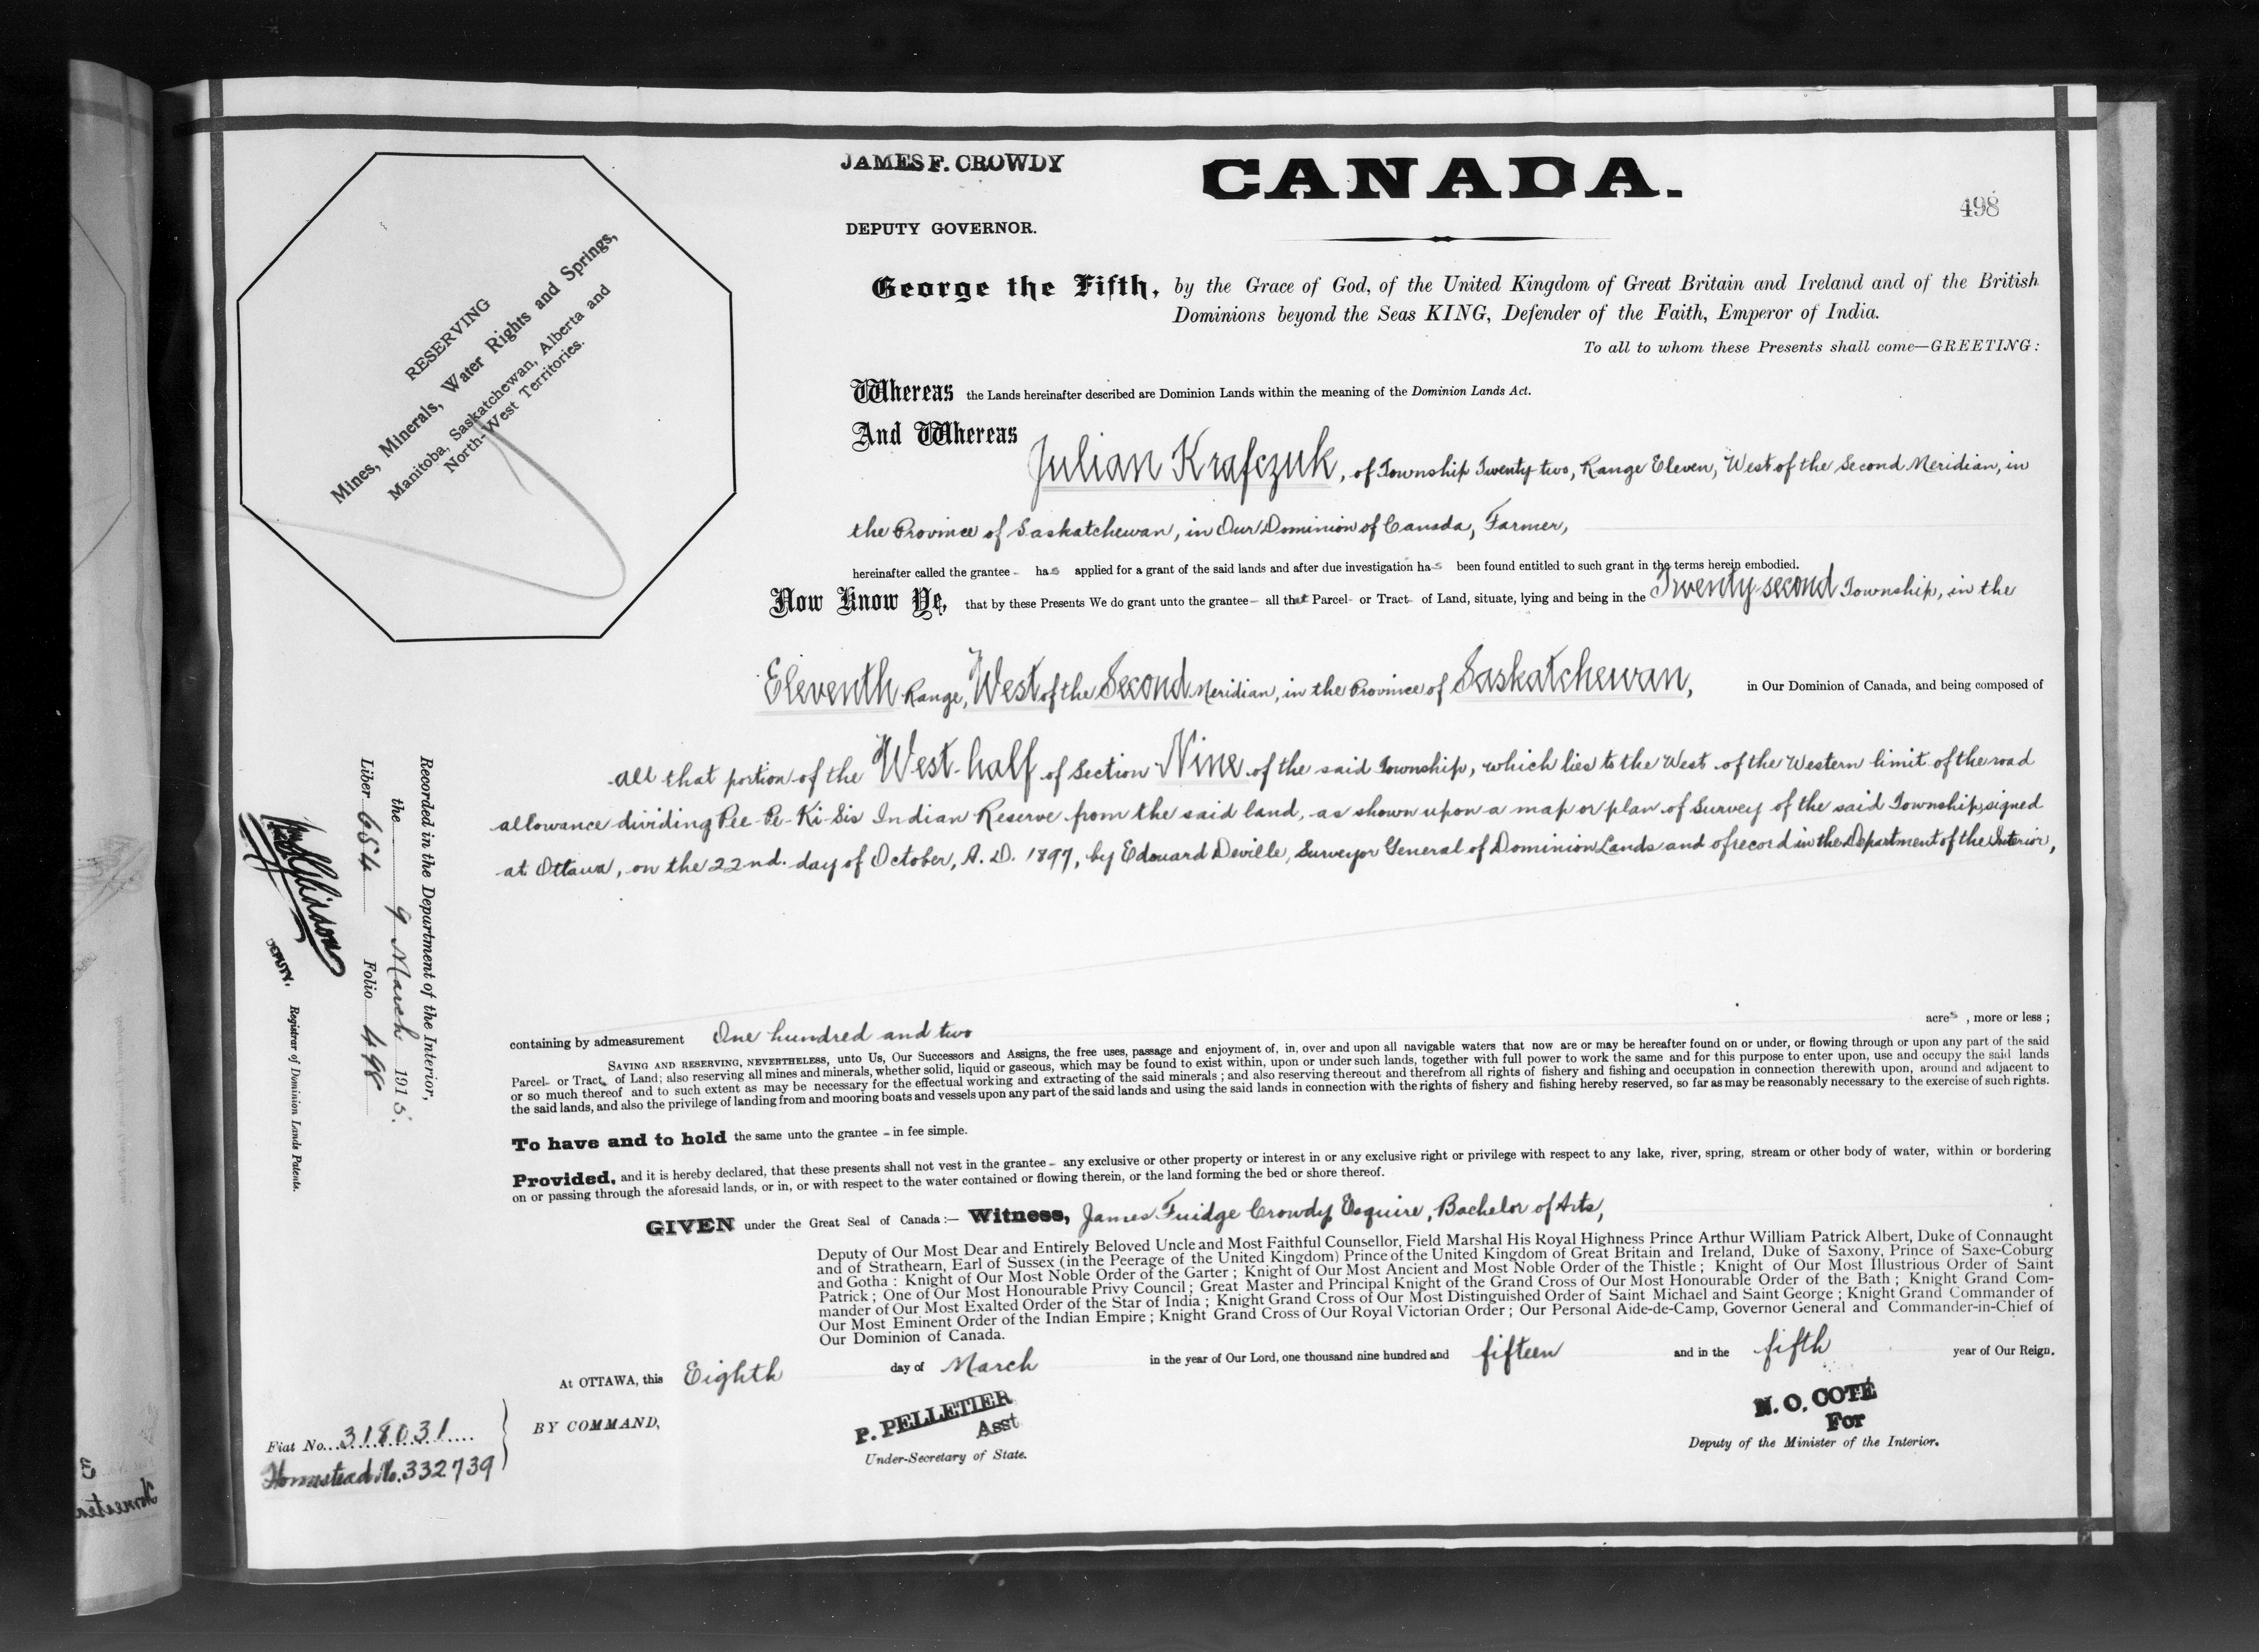 JAMES F. CROWDY
DEPUTY GOVERNOR.
CANADA.
498
RESERVING
Mines, Minerals, Water Rights and Springs,
Manitoba, Saskatchewan, Alberta and
North-West Territories.
George the Fifth, by the Grace of God, of the United Kingdom of Great Britain and Ireland and of the British
Dominions beyond the Seas KING, Defender of the Faith, Emperor of India.
To all to whom these Presents shall come—GREETING:
Whereas the Lands hereinafter described are Dominion Lands within the meaning of the Dominion Lands Act.
And Whereas
Julian Krafczuk, of Township Twenty-two, Range Eleven, West of the Second Meridian, in
the Province of Saskatchewan, in Our Dominion of Canada, Farmer,
hereinafter called the grantee - has applied for a grant of the said lands and after due investigation has been found entitled to such grant in the terms herein embodied.
Now Know Ye, that by these Presents We do grant unto the grantee - all that Parcel- or Tract- of Land, situate, lying and being in the Twenty-second Township, in the
Eleventh Range, West of the Second Meridian, in the Province of Saskatchewan, in Our Dominion of Canada, and being composed of
all that portion of the West-half of Section Nine of the said Township, which lies to the West of the Western limit of the road
allowance dividing Pee-Pe-Ki-Sis Indian Reserve from the said land, as shown upon a map or plan of Survey of the said Township, signed
at Ottawa, on the 22nd. day of October, A.D. 1897, by Edouard Deville, Surveyor General of Dominion Lands and of record in the Department of the Interior,
containing by admeasurement One hundred and two acres, more or less;
SAVING AND RESERVING, NEVERTHELESS, unto Us, Our Successors and Assigns, the free uses, passage and enjoyment of, in, over and upon all navigable waters that now are or may be hereafter found on or under, or flowing through or upon any part of the said
Parcel- or Tract- of Land; also reserving all mines and minerals, whether solid, liquid or gaseous, which may be found to exist within, upon or under such lands, together with full power to work the same and for this purpose to enter upon, use and occupy the said lands
or so much thereof and to such extent as may be necessary for the effectual working and extracting of the said minerals; and also reserving thereout and therefrom all rights of fishery and fishing and occupation in connection therewith upon, around and adjacent to
the said lands, and also the privilege of landing from and mooring boats and vessels upon any part of the said lands and using the said lands in connection with the rights of fishery and fishing hereby reserved, so far as may be reasonably necessary to the exercise of such rights.
To have and to hold the same unto the grantee - in fee simple.
Provided, and it is hereby declared, that these presents shall not vest in the grantee - any exclusive or other property or interest in or any exclusive right or privilege with respect to any lake, river, spring, stream or other body of water, within or bordering
on or passing through the aforesaid lands, or in, or with respect to the water contained or flowing therein, or the land forming the bed or shore thereof.
GIVEN under the Great Seal of Canada:— Witness, James Fuidge Crowdy, Esquire, Bachelor of Arts,
Deputy of Our Most Dear and Entirely Beloved Uncle and Most Faithful Counsellor, Field Marshal His Royal Highness Prince Arthur William Patrick Albert, Duke of Connaught
and of Strathearn, Earl of Sussex (in the Peerage of the United Kingdom) Prince of the United Kingdom of Great Britain and Ireland, Duke of Saxony, Prince of Saxe-Coburg
and Gotha: Knight of Our Most Noble Order of the Garter; Knight of Our Most Ancient and Most Noble Order of the Thistle; Knight of Our Most Illustrious Order of Saint
Patrick; One of Our Most Honourable Privy Council; Great Master and Principal Knight of the Grand Cross of Our Most Honourable Order of the Bath; Knight Grand Com-
mander of Our Most Exalted Order of the Star of India; Knight Grand Cross of Our Most Distinguished Order of Saint Michael and Saint George; Knight Grand Commander of
Our Most Eminent Order of the Indian Empire; Knight Grand Cross of Our Royal Victorian Order; Our Personal Aide-de-Camp, Governor General and Commander-in-Chief of
Our Dominion of Canada.
At OTTAWA, this Eighth day of March in the year of Our Lord, one thousand nine hundred and fifteen and in the fifth year of Our Reign.
BY COMMAND,
P. PELLETIER
Asst
Under-Secretary of State.
N. O. COTÉ
For
Deputy of the Minister of the Interior.
Fiat No. 318031
Homestead No. 332739
Recorded in the Department of the Interior,
the 9 March 1915.
Liber 654 Folio 498
DEPUTY. Registrar of Dominion Lands Patents.